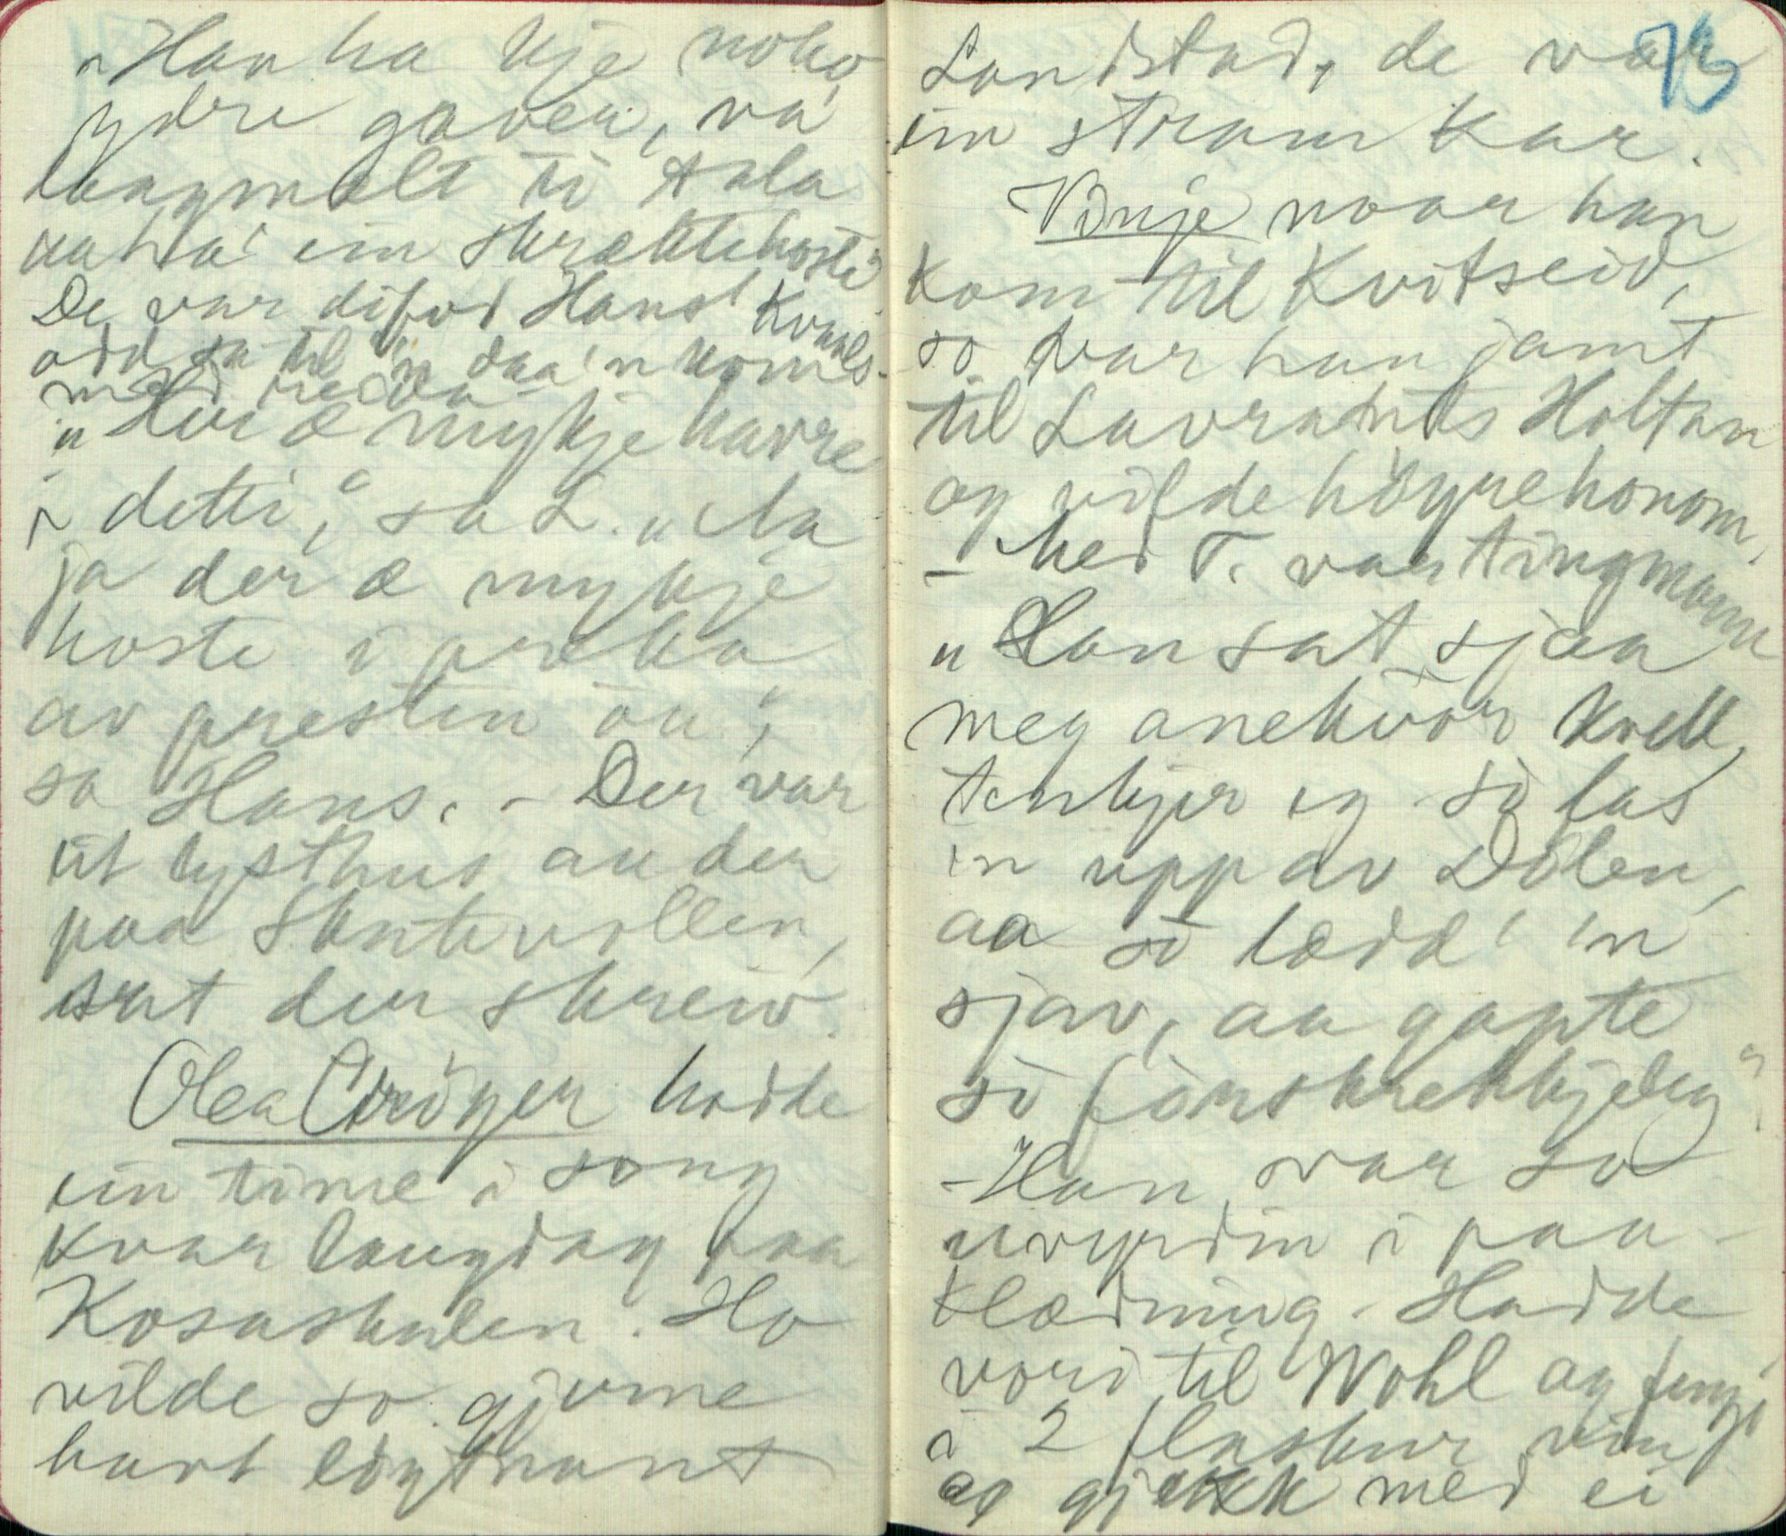 "Han ha kje noko
ydre gaver, va
langmælt ti tala
aa ha' ein skrattehoste"
De var difor Hans Kvaals-
odd sa til 'n daa 'n kom
med reida
"Her æ mykje havre
i detti," sa L. "Aa
ja der æ mykje
hoste i preika
av presten òu",
sa Hans. - Der var
eit lysthus au der
paa Skntevollen,
sat der skreiv.
Olea Crøger hadde
ein time i song
kvar laugdag paa
Kosaskulen. Ho
vilde so gjerne
havt løgtnant
73
Landstad, de var
ein stram kar.
Vinje naar han
kom til Kvitseid,
so var han jamt
til Lavrants Holtan
og vilde høyre honom,
- Med T. var tingmann
"Han sat sjaa
meg anekvor kvell,
tenkjer eg so las
'n upp av Dølen,
aa so lædd' 'n
sjøv, aa gapte
so forskrekkjeleg"
- Han var so
uvyrdin i paa-
klædning. Hadde
vori til Wohl og fengi
i 2 flaskur vin
og gjekk med ei